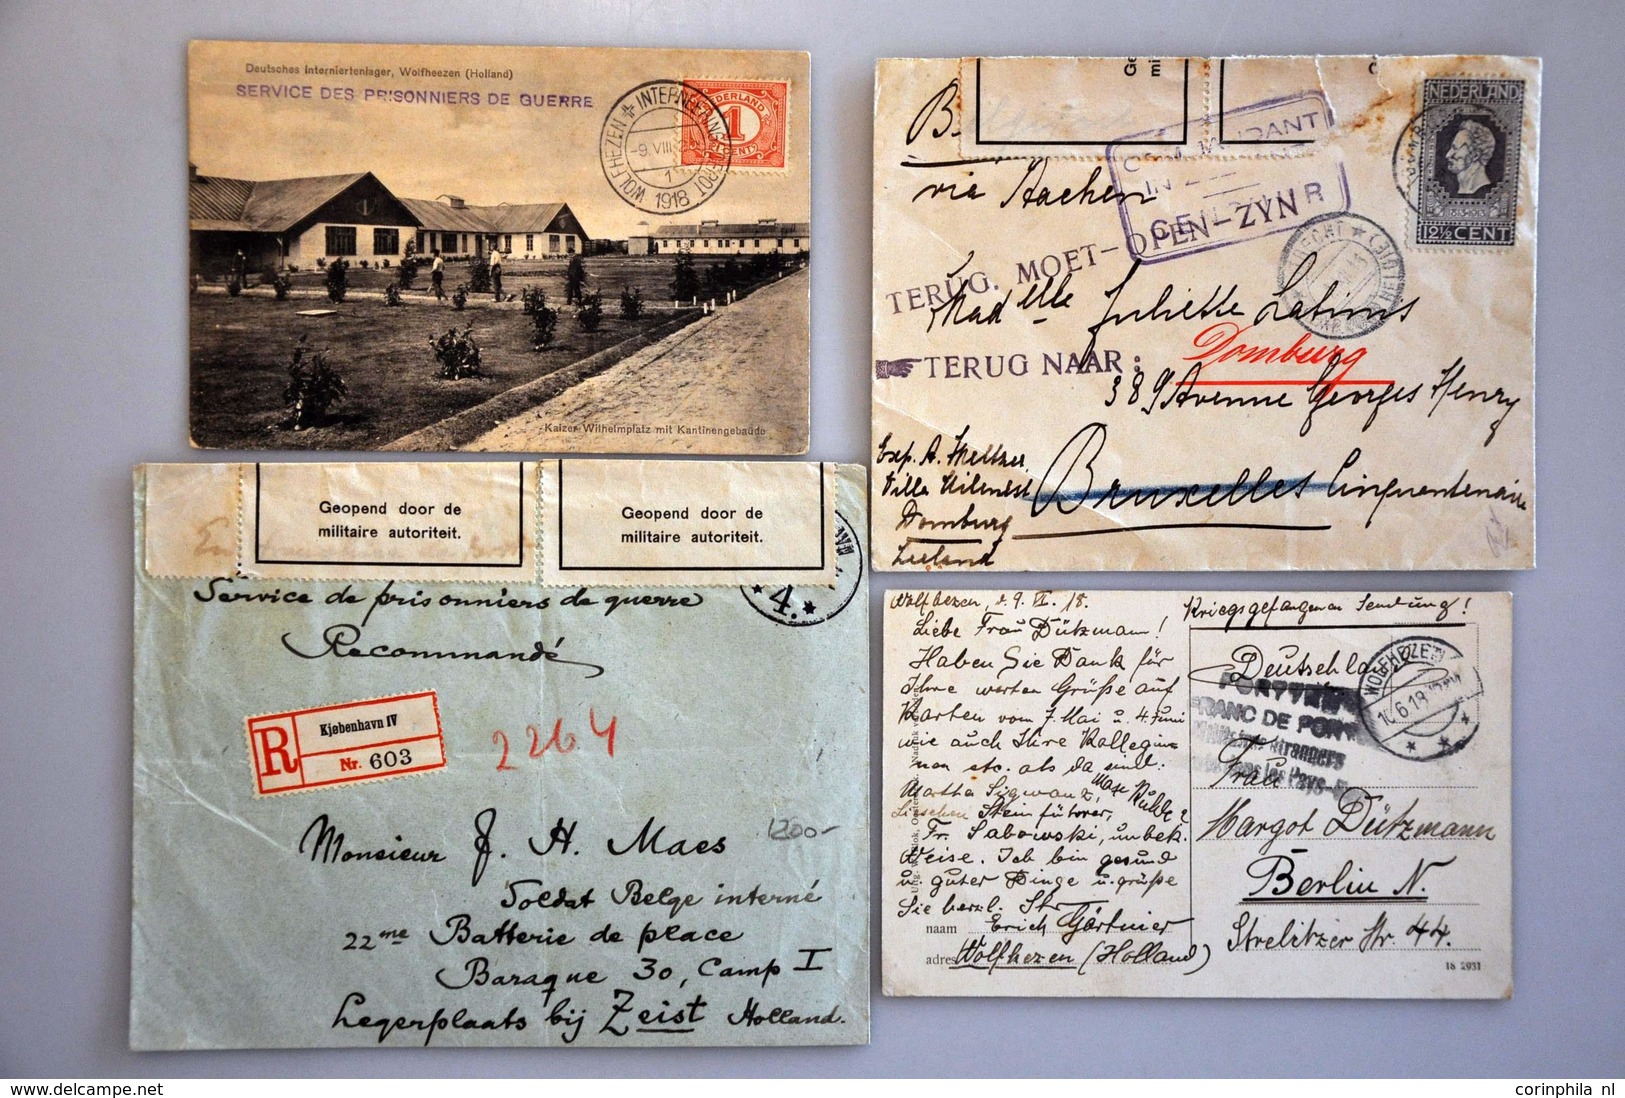 Deutsches Interniertenlager, Wolfheezen (Holland)
SERVICE DES PRISONNIERS DE GUERRE
WOLFHEZEN INTERNEERINGSDEPOT
-9.VIII
1
1918
NEDERLAND
1
1 CENT
Kaizer Wilhelmplatz mit Kantinengebaude
Ge
mi
G
NEDERLAND
12½ CENT
B.
via Aachen
CENSUUR
TERUG. MOET-OPEN-ZYN
Madelle Juliette
TERUG NAAR:
Domburg
389 Avenue Georges Henry
Bruxelles Cinquantenaire
Exp. A. Meltzer
Villa
Domburg
Zeeland
Geopend door de
militaire autoriteit.
Geopend door de
militaire autoriteit.
4.
Service de prisonniers de guerre
Recommandé
R
Kjøbenhavn IV
Nr. 603
2264
1200-
Monsieur J. H. Maes
Soldat Belge interné
22me Batterie de place
Baraque 30, Camp I
Legerplaats bij Zeist Holland.
Wolfhezen, d. 9. VI. 18.
Liebe Frau Dützmann!
Haben Sie Dank für
Ihre werten Grüße auf
Karten vom 7. Mai u. 4. Juni
wie auch Ihre Kollegin-
nen etc. als da sind:
Martha Sigwanz,
Lieschen Steinführer,
Fr. Sabowski, unbek.
Weise. Ich bin gesund
u. guter Dinge u. grüße
Sie herzl. Ihr
naam Erich Gärtner
adres Wolfhezen (Holland)
Kriegsgefangenen Sendung!
Deutschland
FRANC DE PORT
WOLFHEZEN
10.6.18
Frau
Margot Dützmann
Berlin N.
Strelitzer Str. 44.
18 2931
corinphila nl